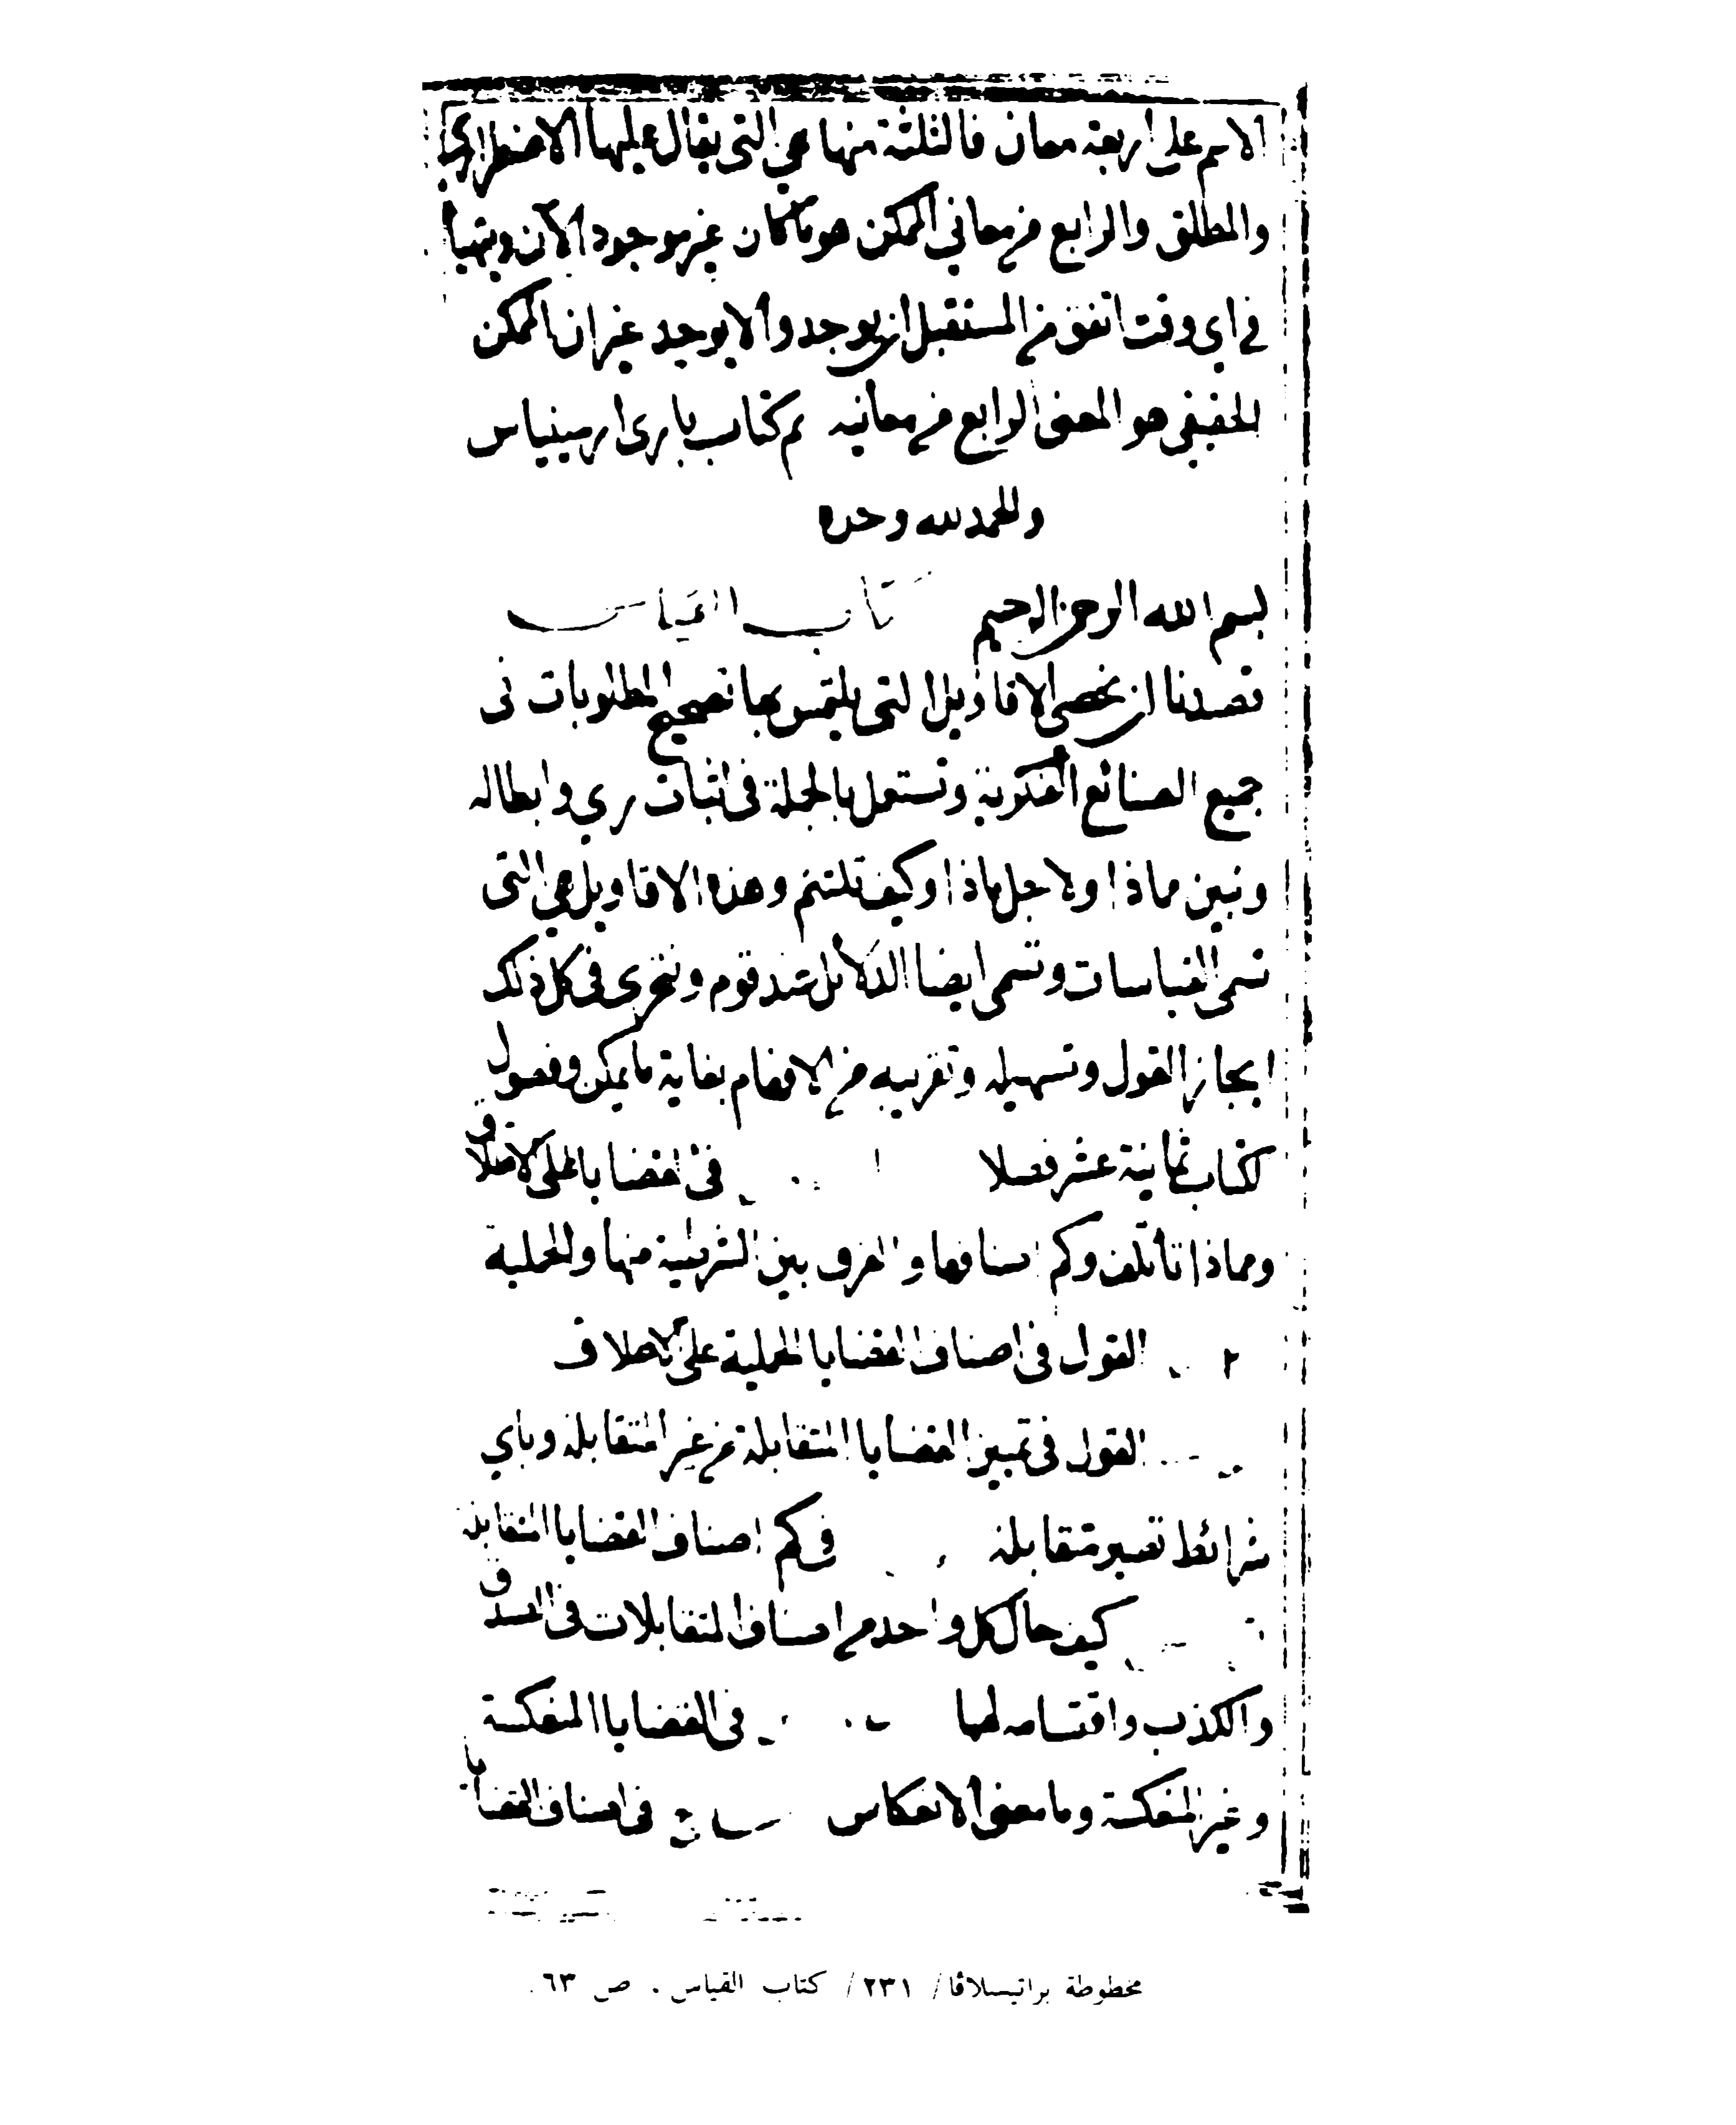 الاسم على اربعة معان فالثلثة منها هي التي يقال عليها الاضطراري
والمطلق والرابع من معاني الممكن هو ما كان غير موجود الآن ويتهيأ
في اي وقت اتفق من المستقبل ان يوجد والا يوجد غير ان الممكن
الحقيقي هو المعنى الرابع من معانيه تم كتاب باري ارمينياس
والحمد لله وحده
بسم الله الرحمن الرحيم كتاب القياس
قصدنا ان نحصي الاقاويل التي يلتمس بها تصحيح المطلوبات في
جميع الصنائع الفكرية وتستعمل بالجملة في اثبات رأي وابطاله
ونبين ماذا ولاجل ماذا وكيف تلتئم وهذه الاقاويل هي التي
تسمى القياسات وتسمى ايضا الدلائل عند قوم ونتحرى في كل ذلك
ايجاز القول وتسهيله وتقريبه من الافهام بغاية ما يمكن وفصول
الكتاب ثمانية عشر فصلا ا في القضايا على الاطلاق
ومماذا تأتلف وكم اصنافها والفرق بين الشرطية منها والحملية
القول في اصناف القضايا الحملية على الاطلاق
القول في تمييز القضايا المتقابلة من غير المتقابلة وباي
شرائط تصير متقابلة في كم اصناف القضايا المتقابلة
كيف حال كل واحد من اصناف المتقابلات في الصدق
والكذب واقتسامه لهما في القضايا المنعكسة
وغير المنعكسة وما معنى الانعكاس في اصناف القضايا
مخطوطة براتيسلاڤا/ ٢٣١/ كتاب القياس . ص ٦٣.